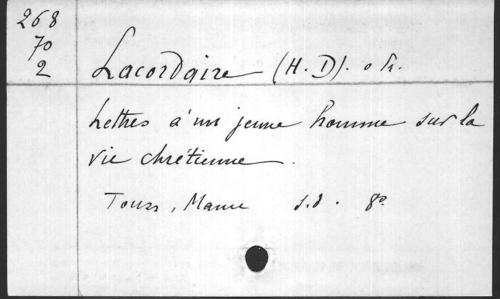 268
70
2
Lacordaire (H. D). o. h.
Lettres à un jeune homme sur la
vie chrétienne.
Tours, Mame s.d. 8º